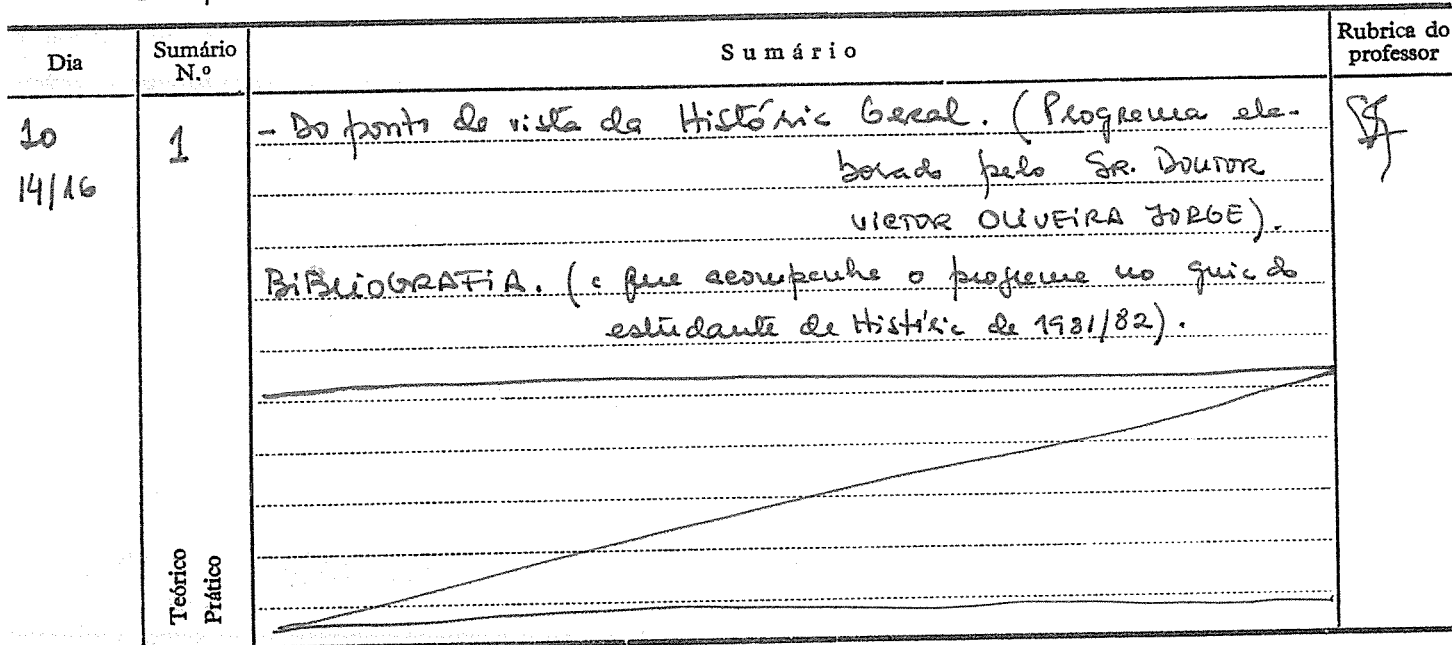 Dia
Sumário N.º
Sumário
Rubrica do professor
10
14/16
1
- Do ponto de vista da História Geral. (Programa ela-
borado pelo SR. DOUTOR
VICTOR OLIVEIRA JORGE).
BIBLIOGRAFIA. (a que acompanha o programa no guia do
estudante de História de 1981/82).
Teórico
Prático